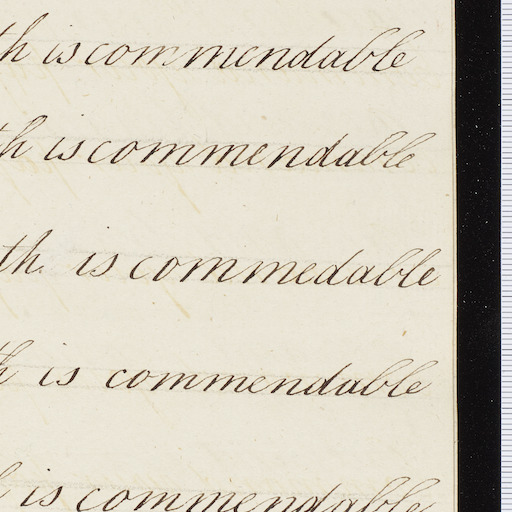 th is commendable
th is commendable
th. is commedable
h is commendable
is commendable